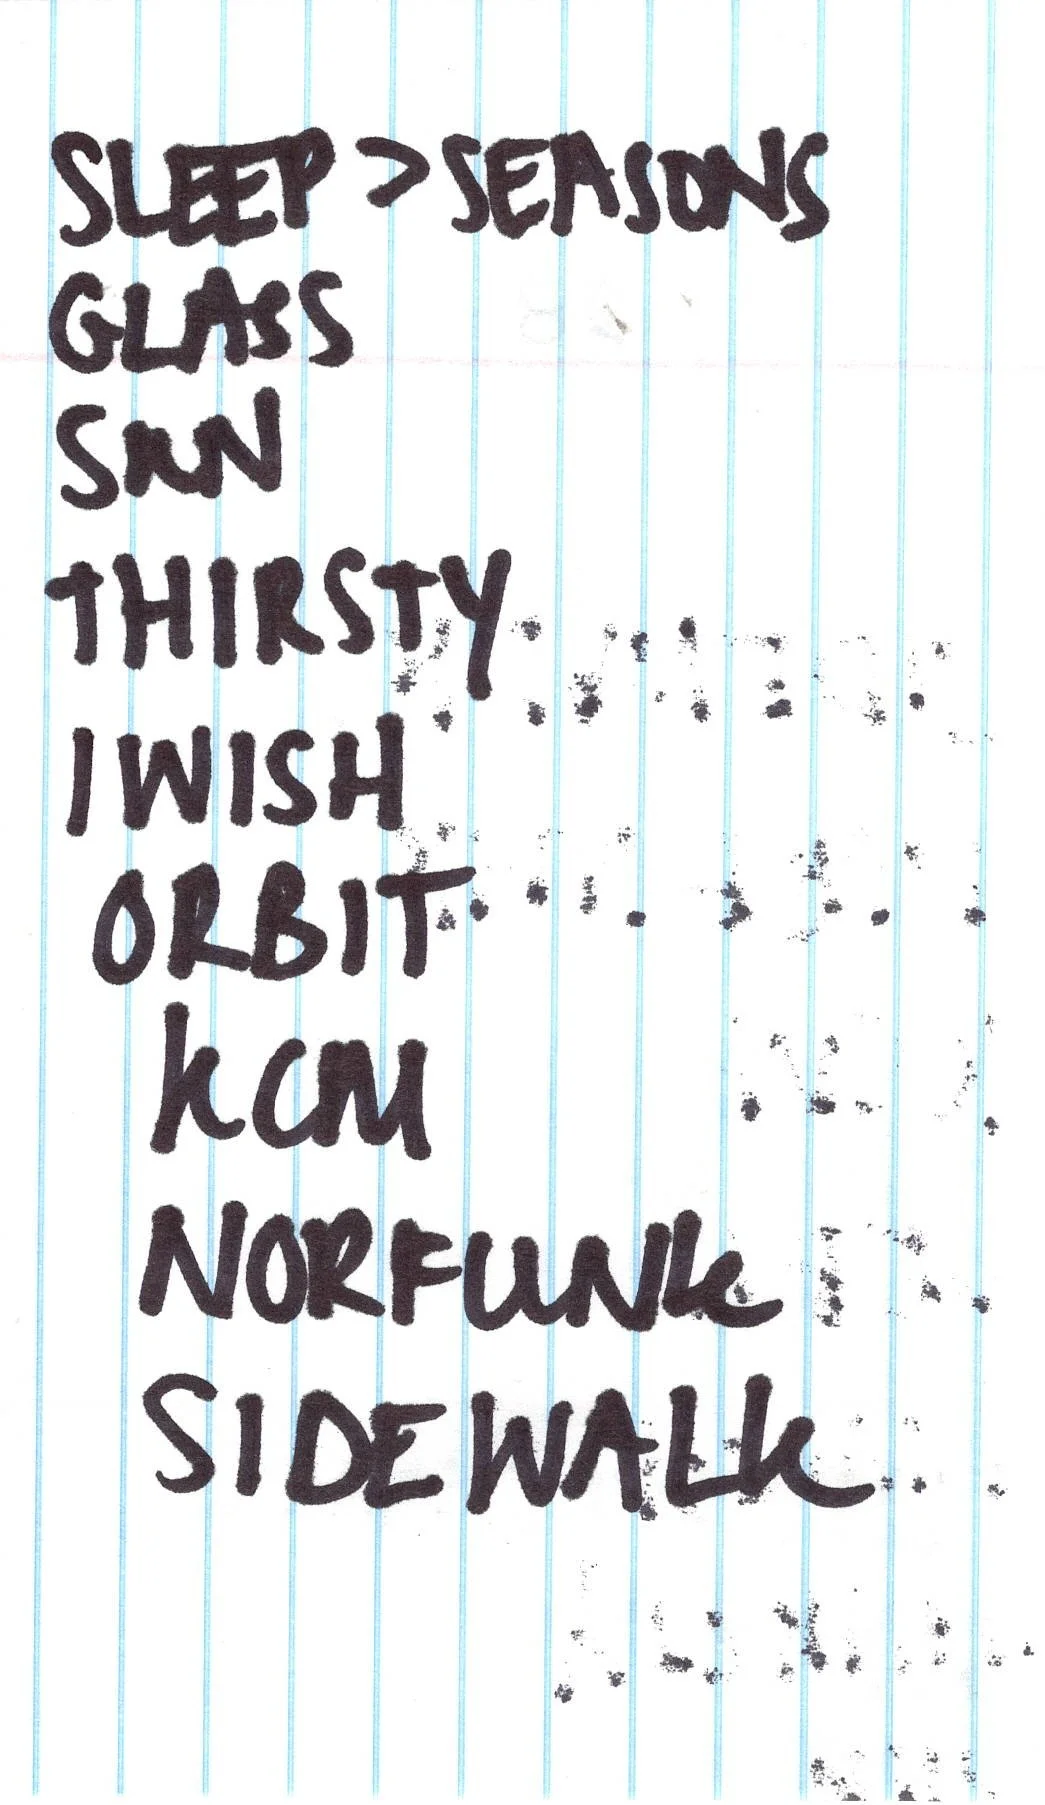 SLEEP > SEASONS
GLASS
THIRSTY
I WISH
ORBIT
KCM
NORFUNK
SIDEWALK